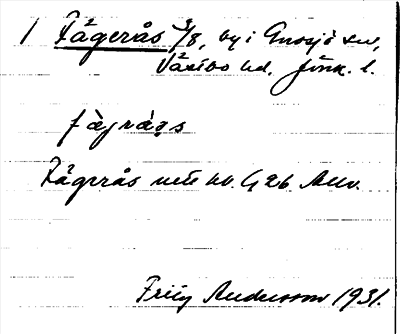 1 Fågerås 3/8, by i Gnosjö sn,
Västbo hd, Jönk. l.
fàgrås
Fågerås utt. hd. G 26 Allv.
Fritz Andersson 1931.